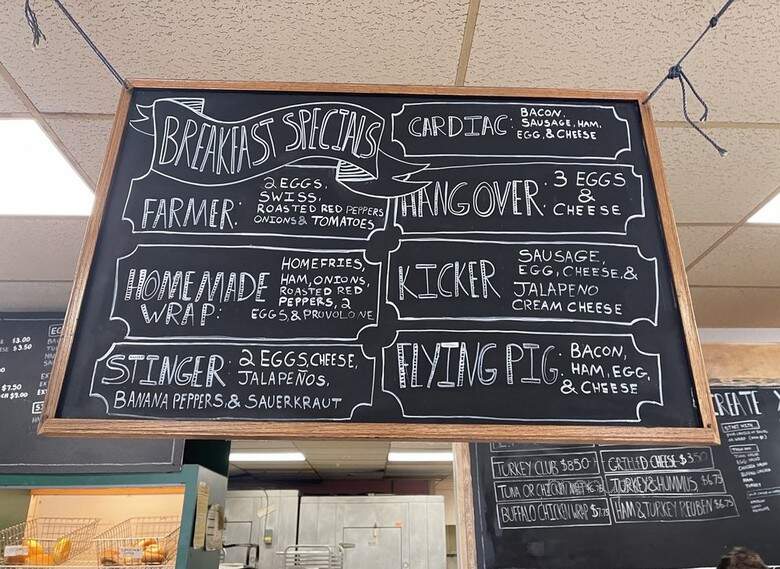 BREAKFAST SPECIALS
FARMER:
2 EGGS,
SWISS,
ROASTED RED PEPPERS
ONIONS & TOMATOES
HOMEMADE
WRAP:
HOMEFRIES,
HAM, ONIONS,
ROASTED RED
PEPPERS, 2
EGGS & PROVOLONE
STINGER:
2 EGGS, CHEESE,
JALAPEÑOS,
BANANA PEPPERS, & SAUERKRAUT
CARDIAC:
BACON,
SAUSAGE, HAM,
EGG, & CHEESE
HANGOVER:
3 EGGS
&
CHEESE
KICKER
SAUSAGE,
EGG, CHEESE, &
JALAPENO
CREAM CHEESE
FLYING PIG:
BACON,
HAM, EGG,
& CHEESE
$3.00
$3.50
$7.50
$9.00
TURKEY CLUB $8.50
GRILLED CHEESE $3.50
TUNA OR CHICKEN
TURKEY & HUMMUS, $6.75
BUFFALO CHICKEN WRAP $7.75
HAM & TURKEY REUBEN $6.75